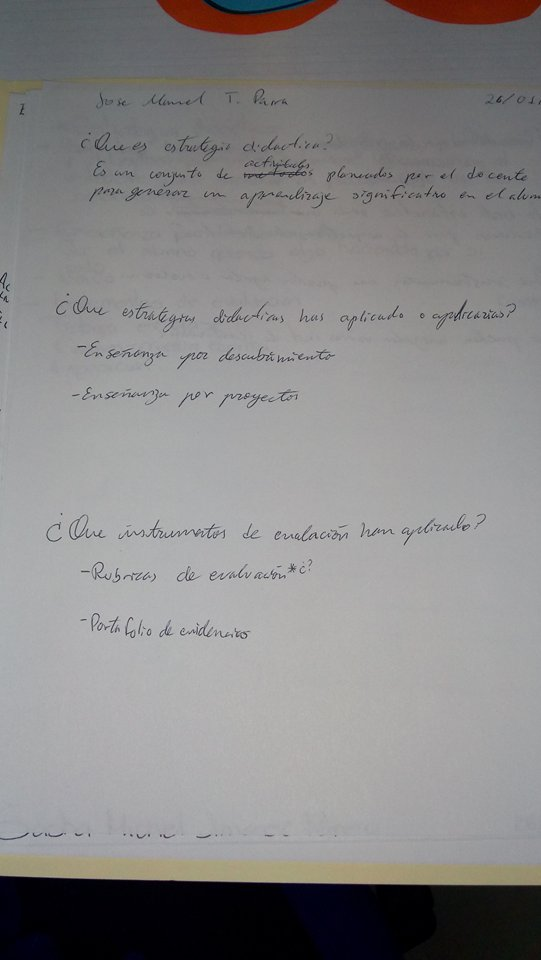 Jose Manuel T. Parra 26/01
¿Que es estrategia didactica?
Es un conjunto de actividades planeados por el docente
para generar un aprendizaje significativo en el alum
¿Que estrategias didacticas has aplicado o aplicarias?
-Enseñanza por descubrimiento
-Enseñanza por proyectos
¿Que instrumentos de evalación han aplicado?
-Rubricas de evaluación *¿?
-Portafolio de evidencias